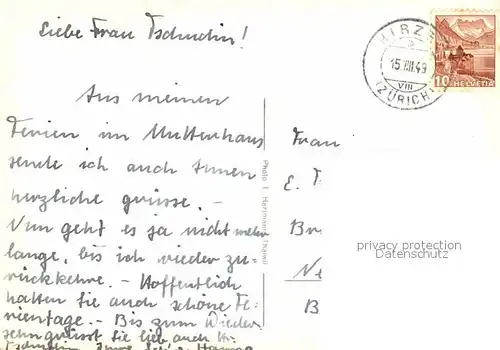 Liebe Frau Tschudin!
Aus meinen
Ferien im Mutterhaus
sende ich auch Ihnen
herzliche Grüsse. -
Nun geht es ja nicht mehr
lange, bis ich wieder zu-
rückkehre. - Hoffentlich
halten Sie auch schöne Fe-
rientage. - Bis zum Wieder-
sehn grüsst Sie lieb auch Hr.
Tschudin Ihre
HIRZ
15.VIII.49
VIII
(ZÜRICH)
10 HELVETIA
Photo E. Herrmann, Thalwil
Frau
E. T
Br
Ne
B
privacy protection
Datenschutz